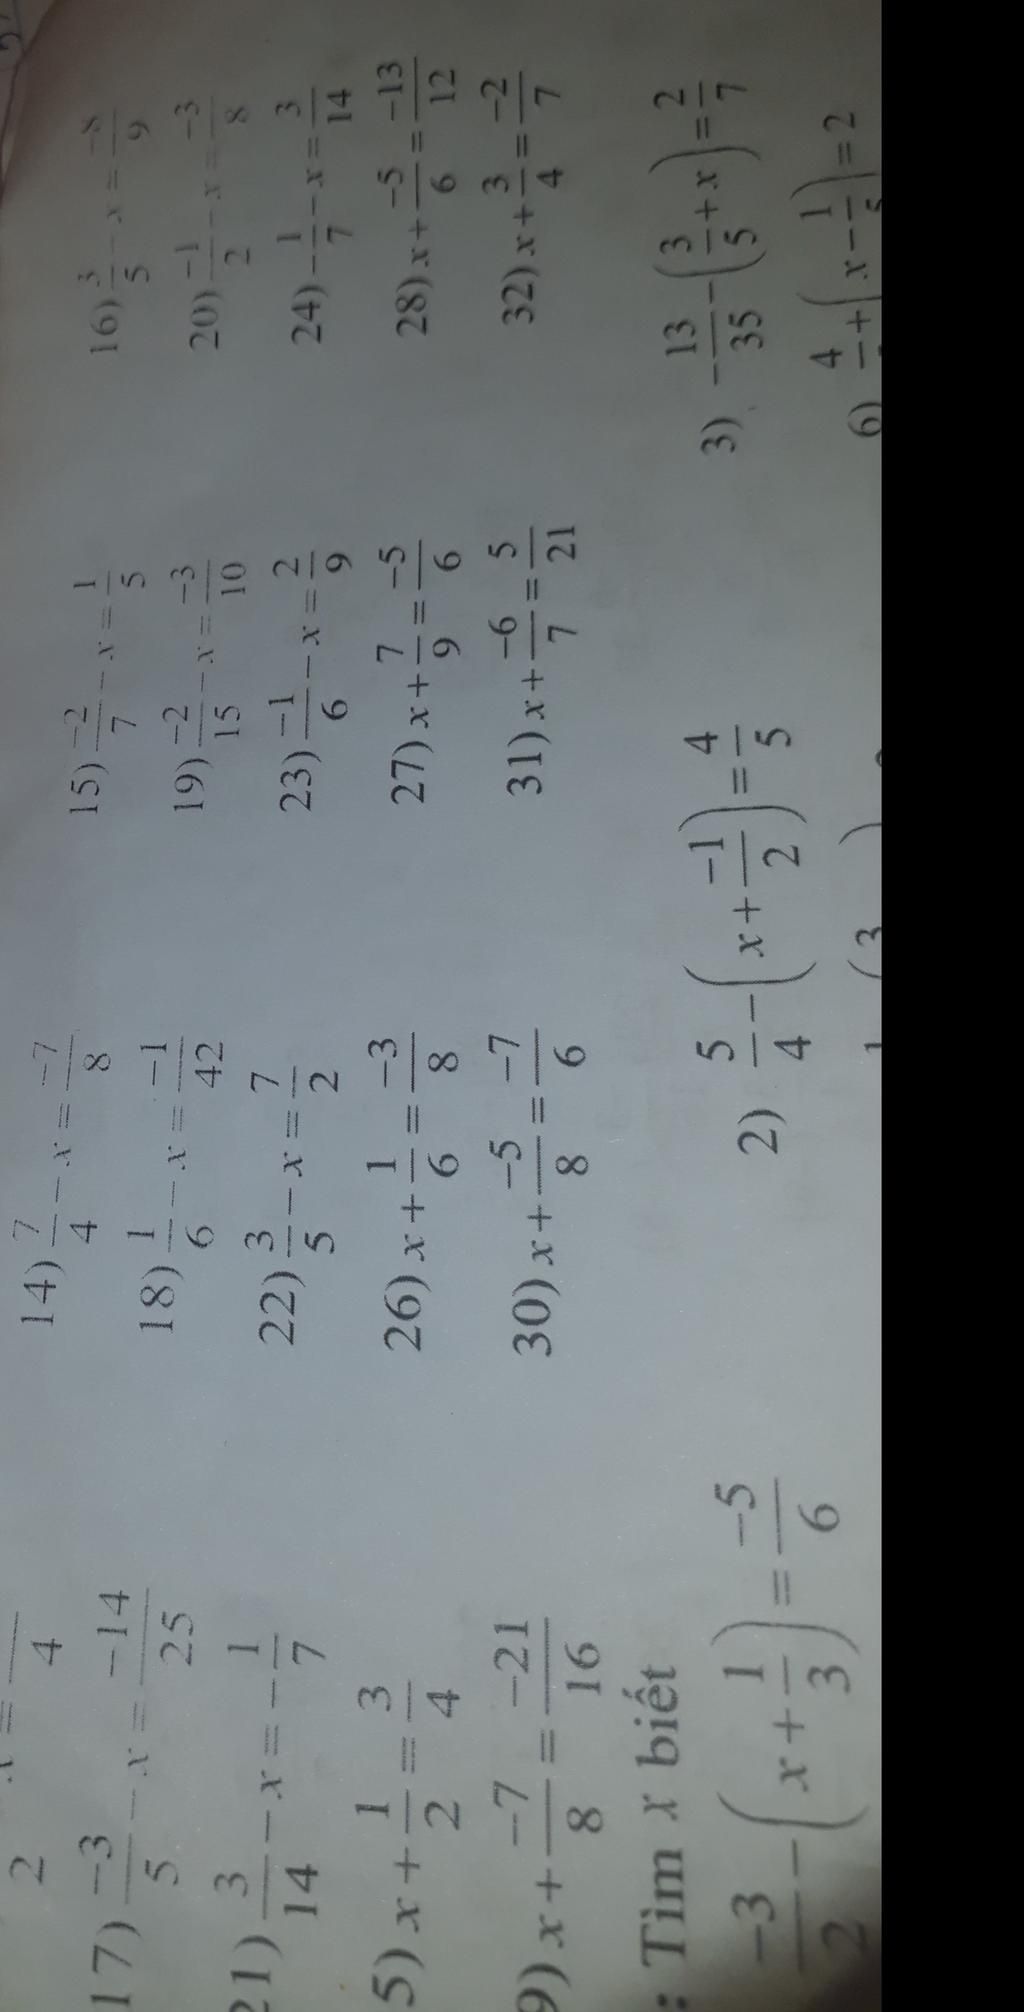 2 x = 4
14) 7/4 - x = -7/8
15) -2/7 - x = 1/5
16) 3/5 - x = 9
17) -3/5 - x = -14/25
18) 1/6 - x = -1/42
19) -2/15 - x = -3/10
20) -1/2 - x = -3/8
21) 3/14 - x = -1/7
22) 3/5 - x = 7/2
23) -1/6 - x = 2/9
24) -1/7 - x = 3/14
5) x + 1/2 = 3/4
26) x + 1/6 = -3/8
27) x + 7/9 = -5/6
28) x + -5/6 = -13/12
9) x + -7/8 = -21/16
30) x + -5/8 = -7/6
31) x + -6/7 = 5/21
32) x + 3/4 = -2/7
: Tìm x biết
-3/2 - (x + 1/3) = -5/6
2) 5/4 - (x + -1/2) = 4/5
3) -13/35 - (3/5 + x) = 2/7
1 (3 )
6) 4 + (x - 1/5) = 2